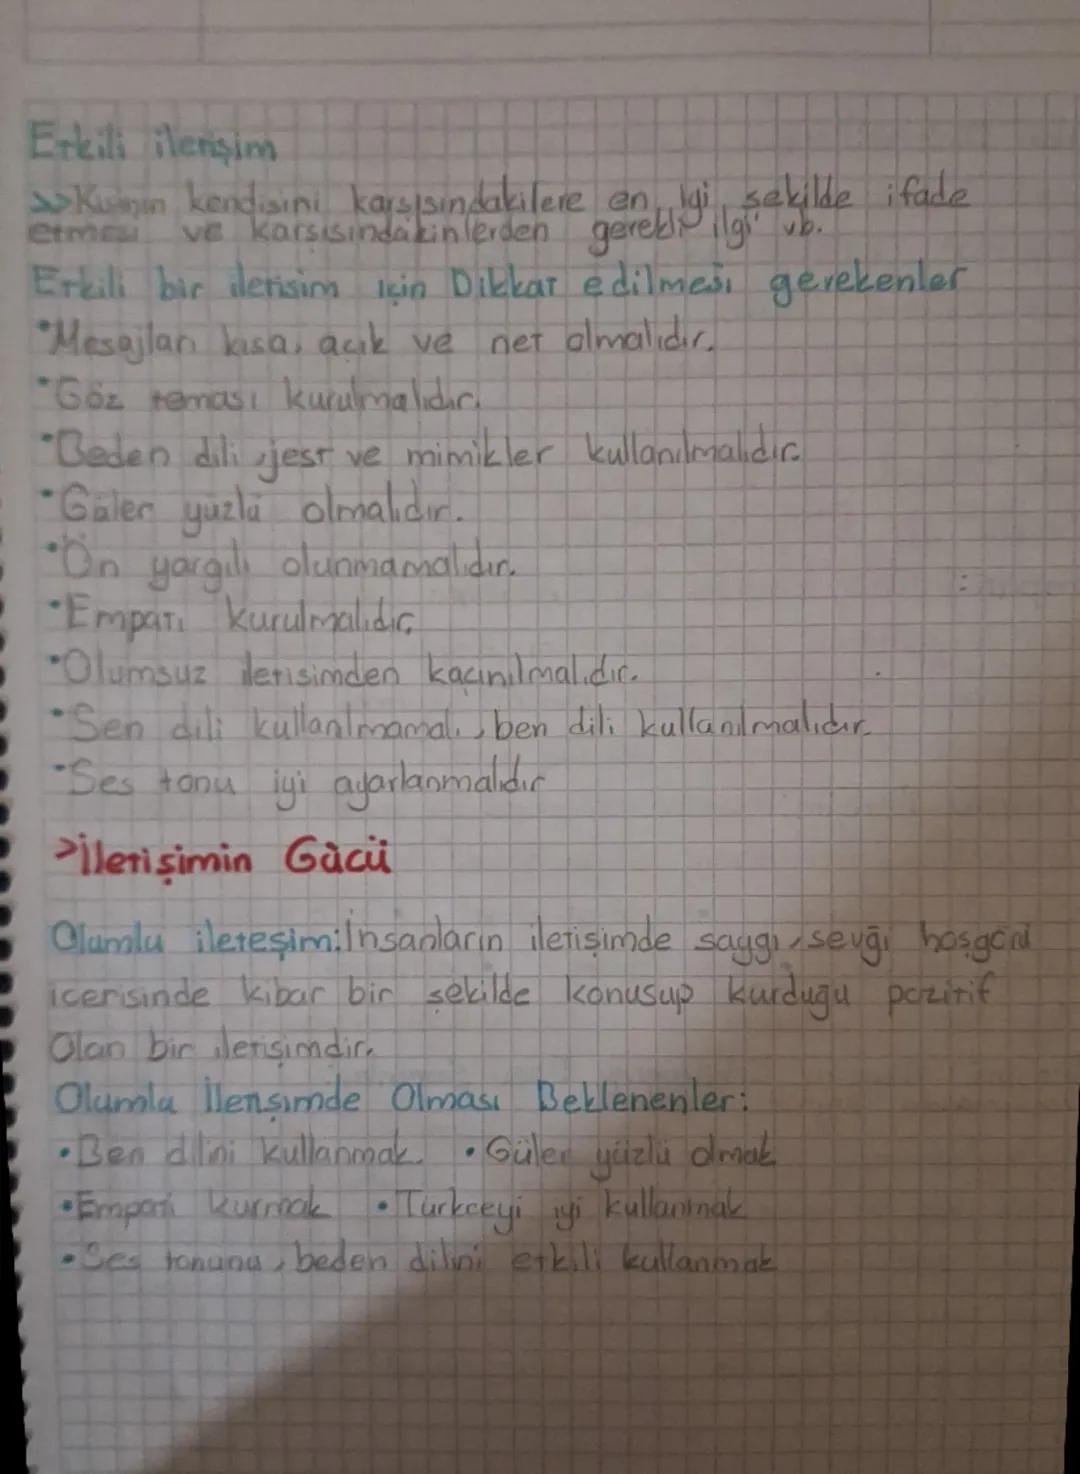 Etkili iletişim
>>Kişinin kendisini karşısındakilere en iyi şekilde ifade
etmesi ve karsısındakinlerden gerekli ilgi vb.
Etkili bir iletisim için Dikkat edilmesi gerekenler
•Mesajları kısa, açık ve net olmalıdır.
•Göz teması kurulmalıdır.
•Beden dili, jest ve mimikler kullanılmalıdır.
•Güler yüzlü olmalıdır.
•Ön yargılı olunmamalıdır.
•Empati kurulmalıdır.
•Olumsuz iletisimden kaçınılmalıdır.
•Sen dili kullanılmamalı, ben dili kullanılmalıdır.
•Ses tonu iyi ayarlanmalıdır
>İletişimin Gücü
Olumlu ileteşim:İnsanların iletişimde saygı, sevgi hoşgörü
icerisinde kibar bir şekilde konusup kurduğu pozitif
Olan bir iletişimdir.
Olumlu İletişimde Olması Beklenenler:
•Ben dilini kullanmak. •Güler yüzlü olmak
•Empati kurmak •Türkceyi iyi kullanmak
•Ses tonunu, beden dilini etkili kullanmak